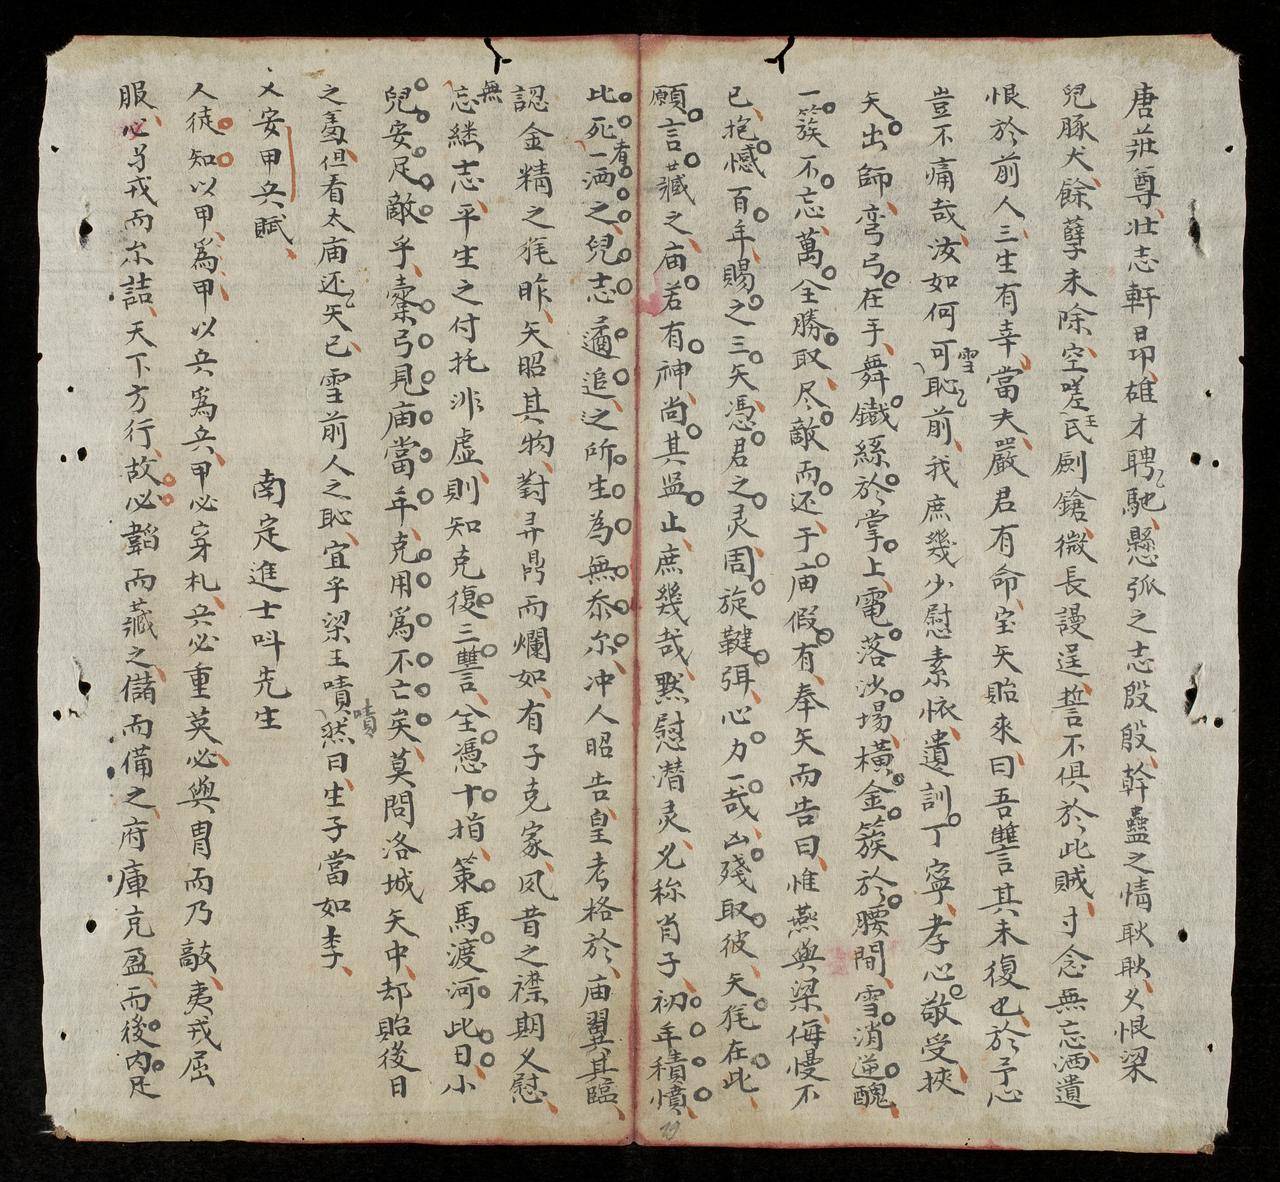 唐莊尊壮志軒昂雄才聘馳懸弧之志殷殷幹蠱之情耿耿乂恨梁
兒豚犬餘孽未除空嗟王氏劍鎗微長謾逞誓不俱於此賊寸念無忘洒遺
恨於前人三生有幸當夫嚴君有命宝矢貽來曰吾讐其未復也於予心
豈不痛哉汝如何可雪恥前我庶幾少慰素依遺訓丁寧孝心敬受挾
矢出師弯弓在手舞鐵絲於掌上電落沙場橫金簇於腰間雪消逆醜
一簇不忘萬全勝取尽敵而还于庙假有奉矢而告曰惟燕與梁侮慢不
已抱憾百年賜之三矢憑君之灵周旋鞬弭心力一哉凶殘取彼矢旄在此
願言藏之庙若有神尚其監止庶幾哉黙慰潜灵乂称肖子初年積憤
比死者一洒之兒志適追之所生為無忝尔冲人昭告皇考格於庙翼其臨
認金精之旄昨矢昭其物對弄鹃而爛如有子克家夙昔之襟期乂慰
無忘継志平生之付托非虚則知克復三讐全憑十指策馬渡河此日小
兒安足敵乎櫜弓見庙當年克用為不亡矣莫問洛城矢中却貽後日
之羞但看太庙还矢已雪前人之恥宜乎梁王嘖然曰生子當如李
乂安甲兵賦
南定進士呌先生
人徒知以甲爲甲以兵爲兵甲必穿札兵必重英必與胄而乃敲夷戎屈
服必与戎而尔詰天下方行故必韜而藏之儲而備之府庫克盈而後内足